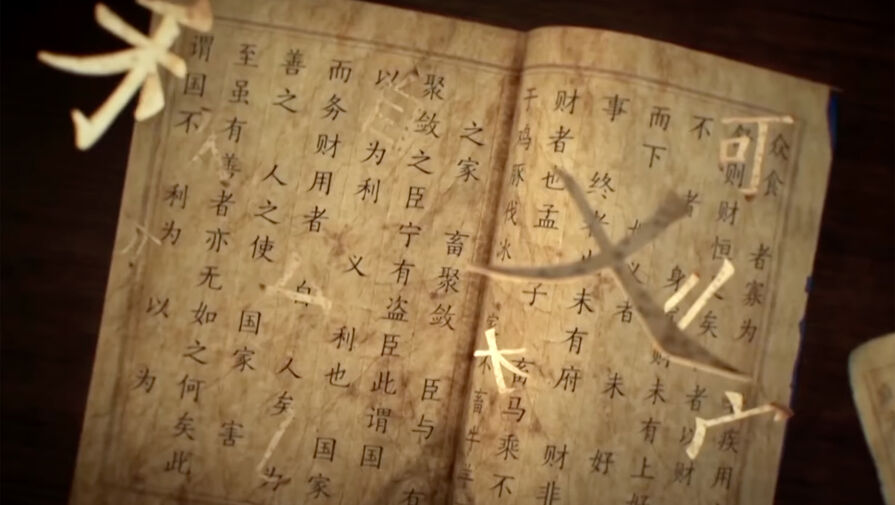 众食 者寡为 疾用
则财恒 矣 者以财
不 者 身 财未有上好
而下 义者 未 好
事 终者 未有府 财非
财者也孟子 畜马乘不
于鸡豚伐冰 家不畜牛羊
之家 畜聚敛 臣与有
聚敛之臣宁有盗臣此谓国
以 为利 义 利也 国家
而务财用者 自 人矣 为
善之 人之使 国家 害
至虽有善者亦无如之何矣此
谓国不 利为 以 为
可